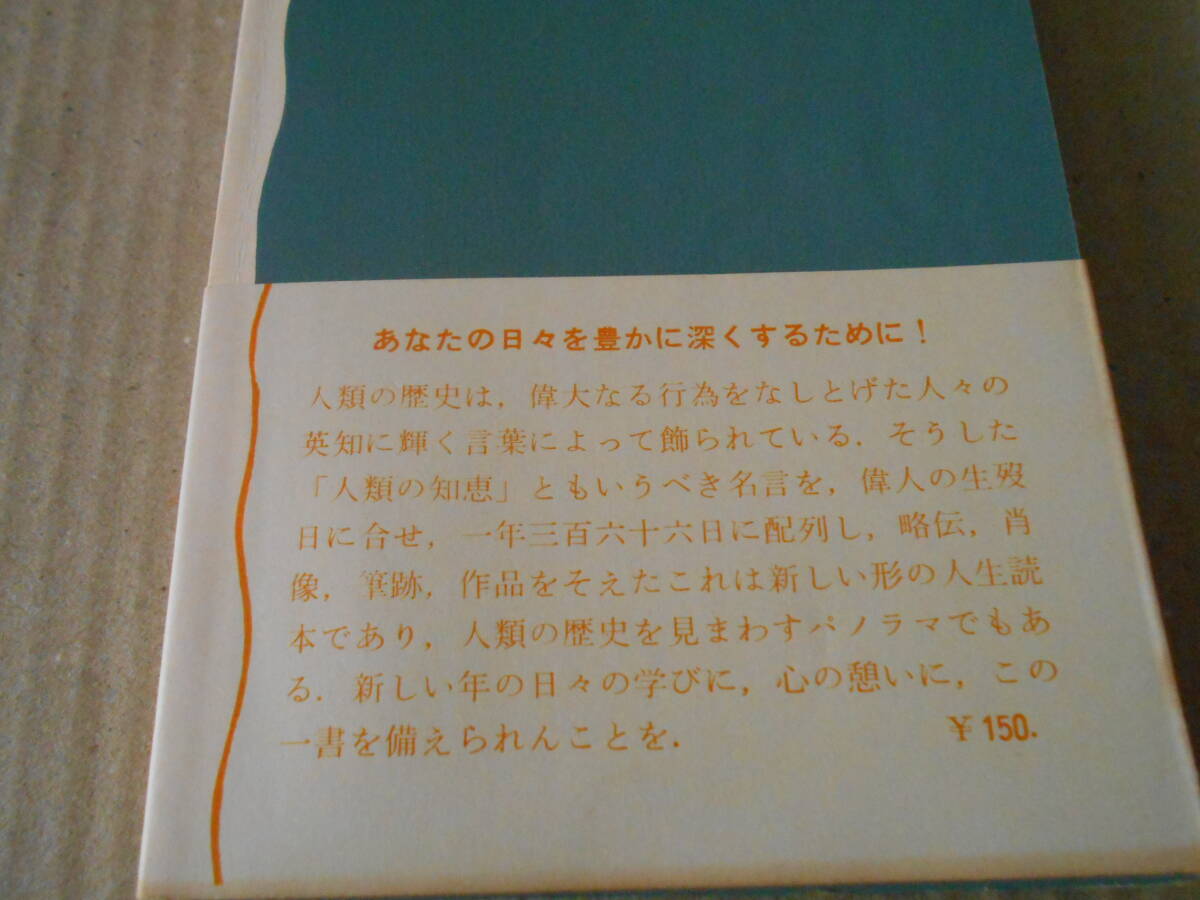 あなたの日々を豊かに深くするために！
人類の歴史は，偉大なる行為をなしとげた人々の
英知に輝く言葉によって飾られている．そうした
「人類の知恵」ともいうべき名言を，偉人の生歿
日に合せ，一年三百六十六日に配列し，略伝，肖
像，筆跡，作品をそえたこれは新しい形の人生読
本であり，人類の歴史を見まわすパノラマでもあ
る．新しい年の日々の学びに，心の憩いに，この
一書を備えられんことを．
￥150.